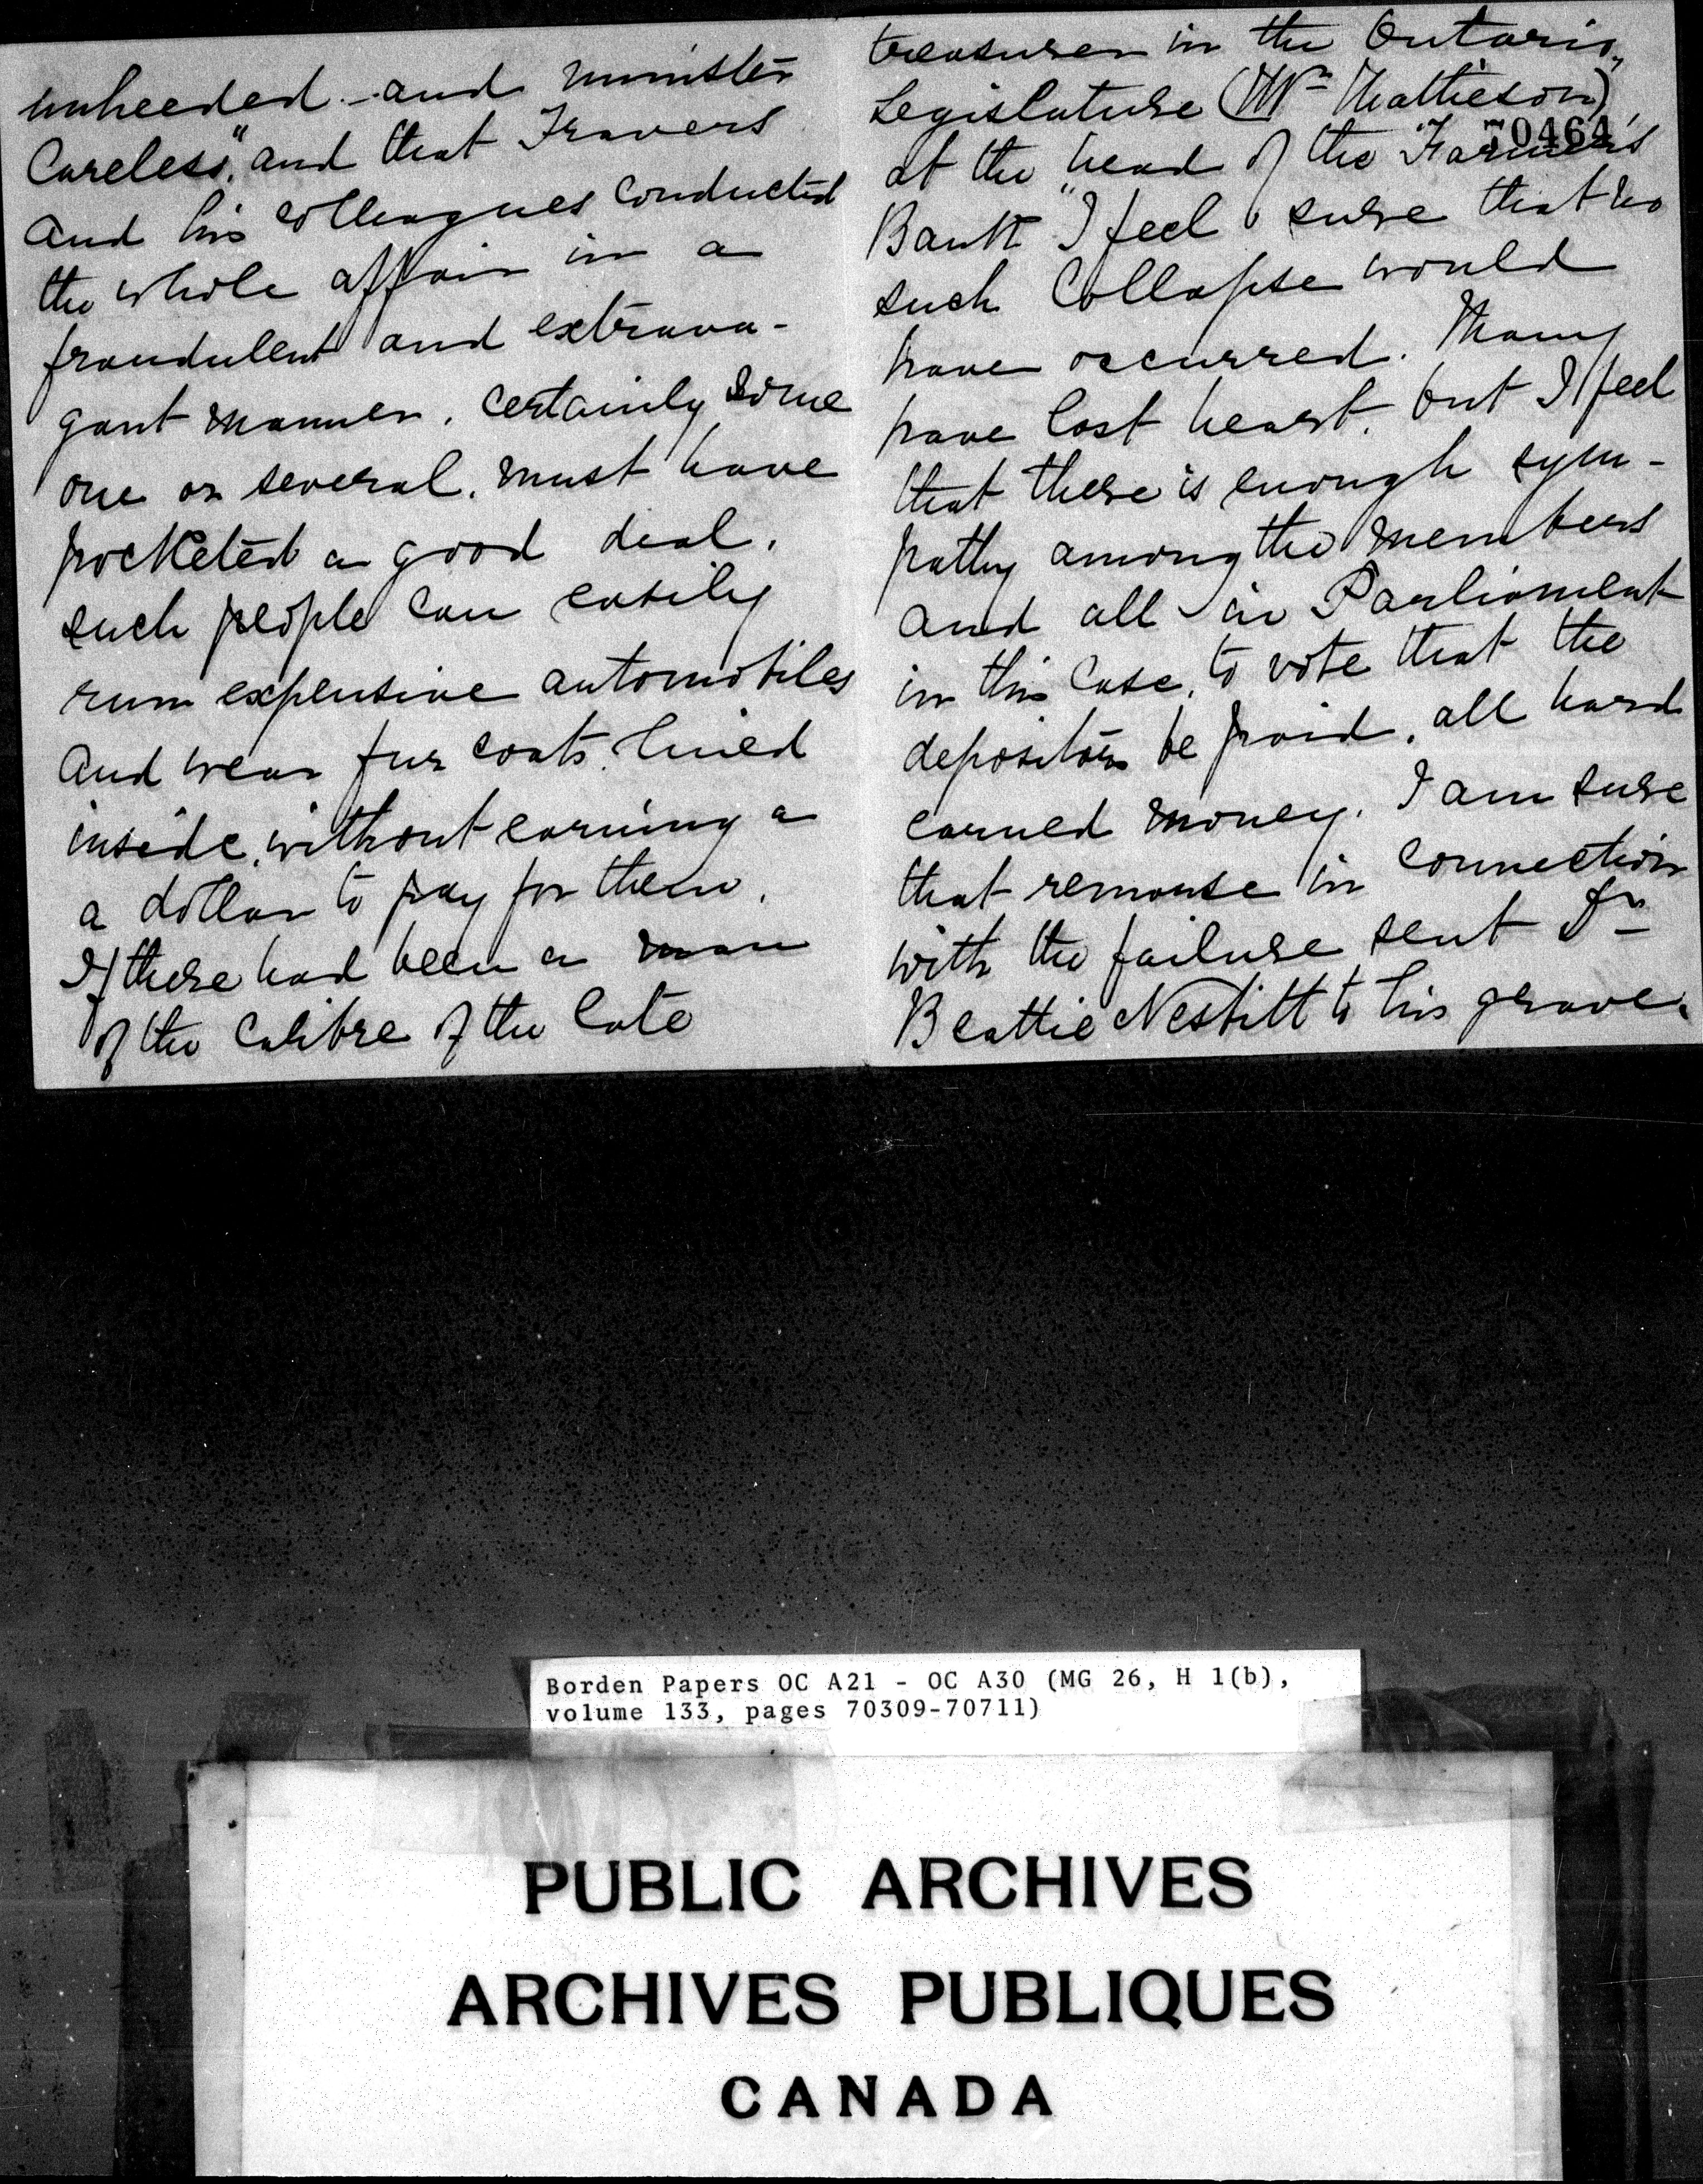 unheeded - and minister
Careless," and that Travers
and his colleagues conducted
the whole affair in a
fraudulent and extrava-
gant manner. certainly some
one or several. must have
pocketed a good deal.
such people can easily
run expensive automobiles
and wear fur coats. lined
inside, without earning a
a dollar to pay for them.
If there had been a man
of the calibre of the late
treasurer in the Ontario
Legislature (Mr Mathieson)
70464
at the head of the "Farmer's
Bank" I feel sure that no
such Collapse would
have occurred. Many
have lost heart. but I feel
that there is enough sym-
pathy among the members
and all in Parliament
in this case, to vote that the
depositors be paid, all hard
earned money. I am sure
that remorse in connection
with the failure sent Dr
Beattie Nesbitt to his grave.
Borden Papers OC A21 - OC A30 (MG 26, H 1(b),
volume 133, pages 70309-70711)
PUBLIC ARCHIVES
ARCHIVES PUBLIQUES
CANADA